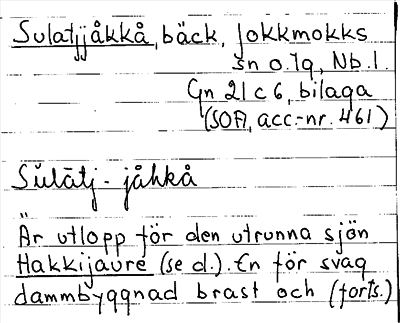 Sulatjjåkkå, bäck, Jokkmokks
sn o. lg, Nb. l.
Gn 21 c 6, bilaga
(SOFI, acc.-nr. 461)
Sŭlātj - jåhkå
Är utlopp för den utrunna sjön
Hakkijaure (se d.). En för svag
dammbyggnad brast och (forts.)